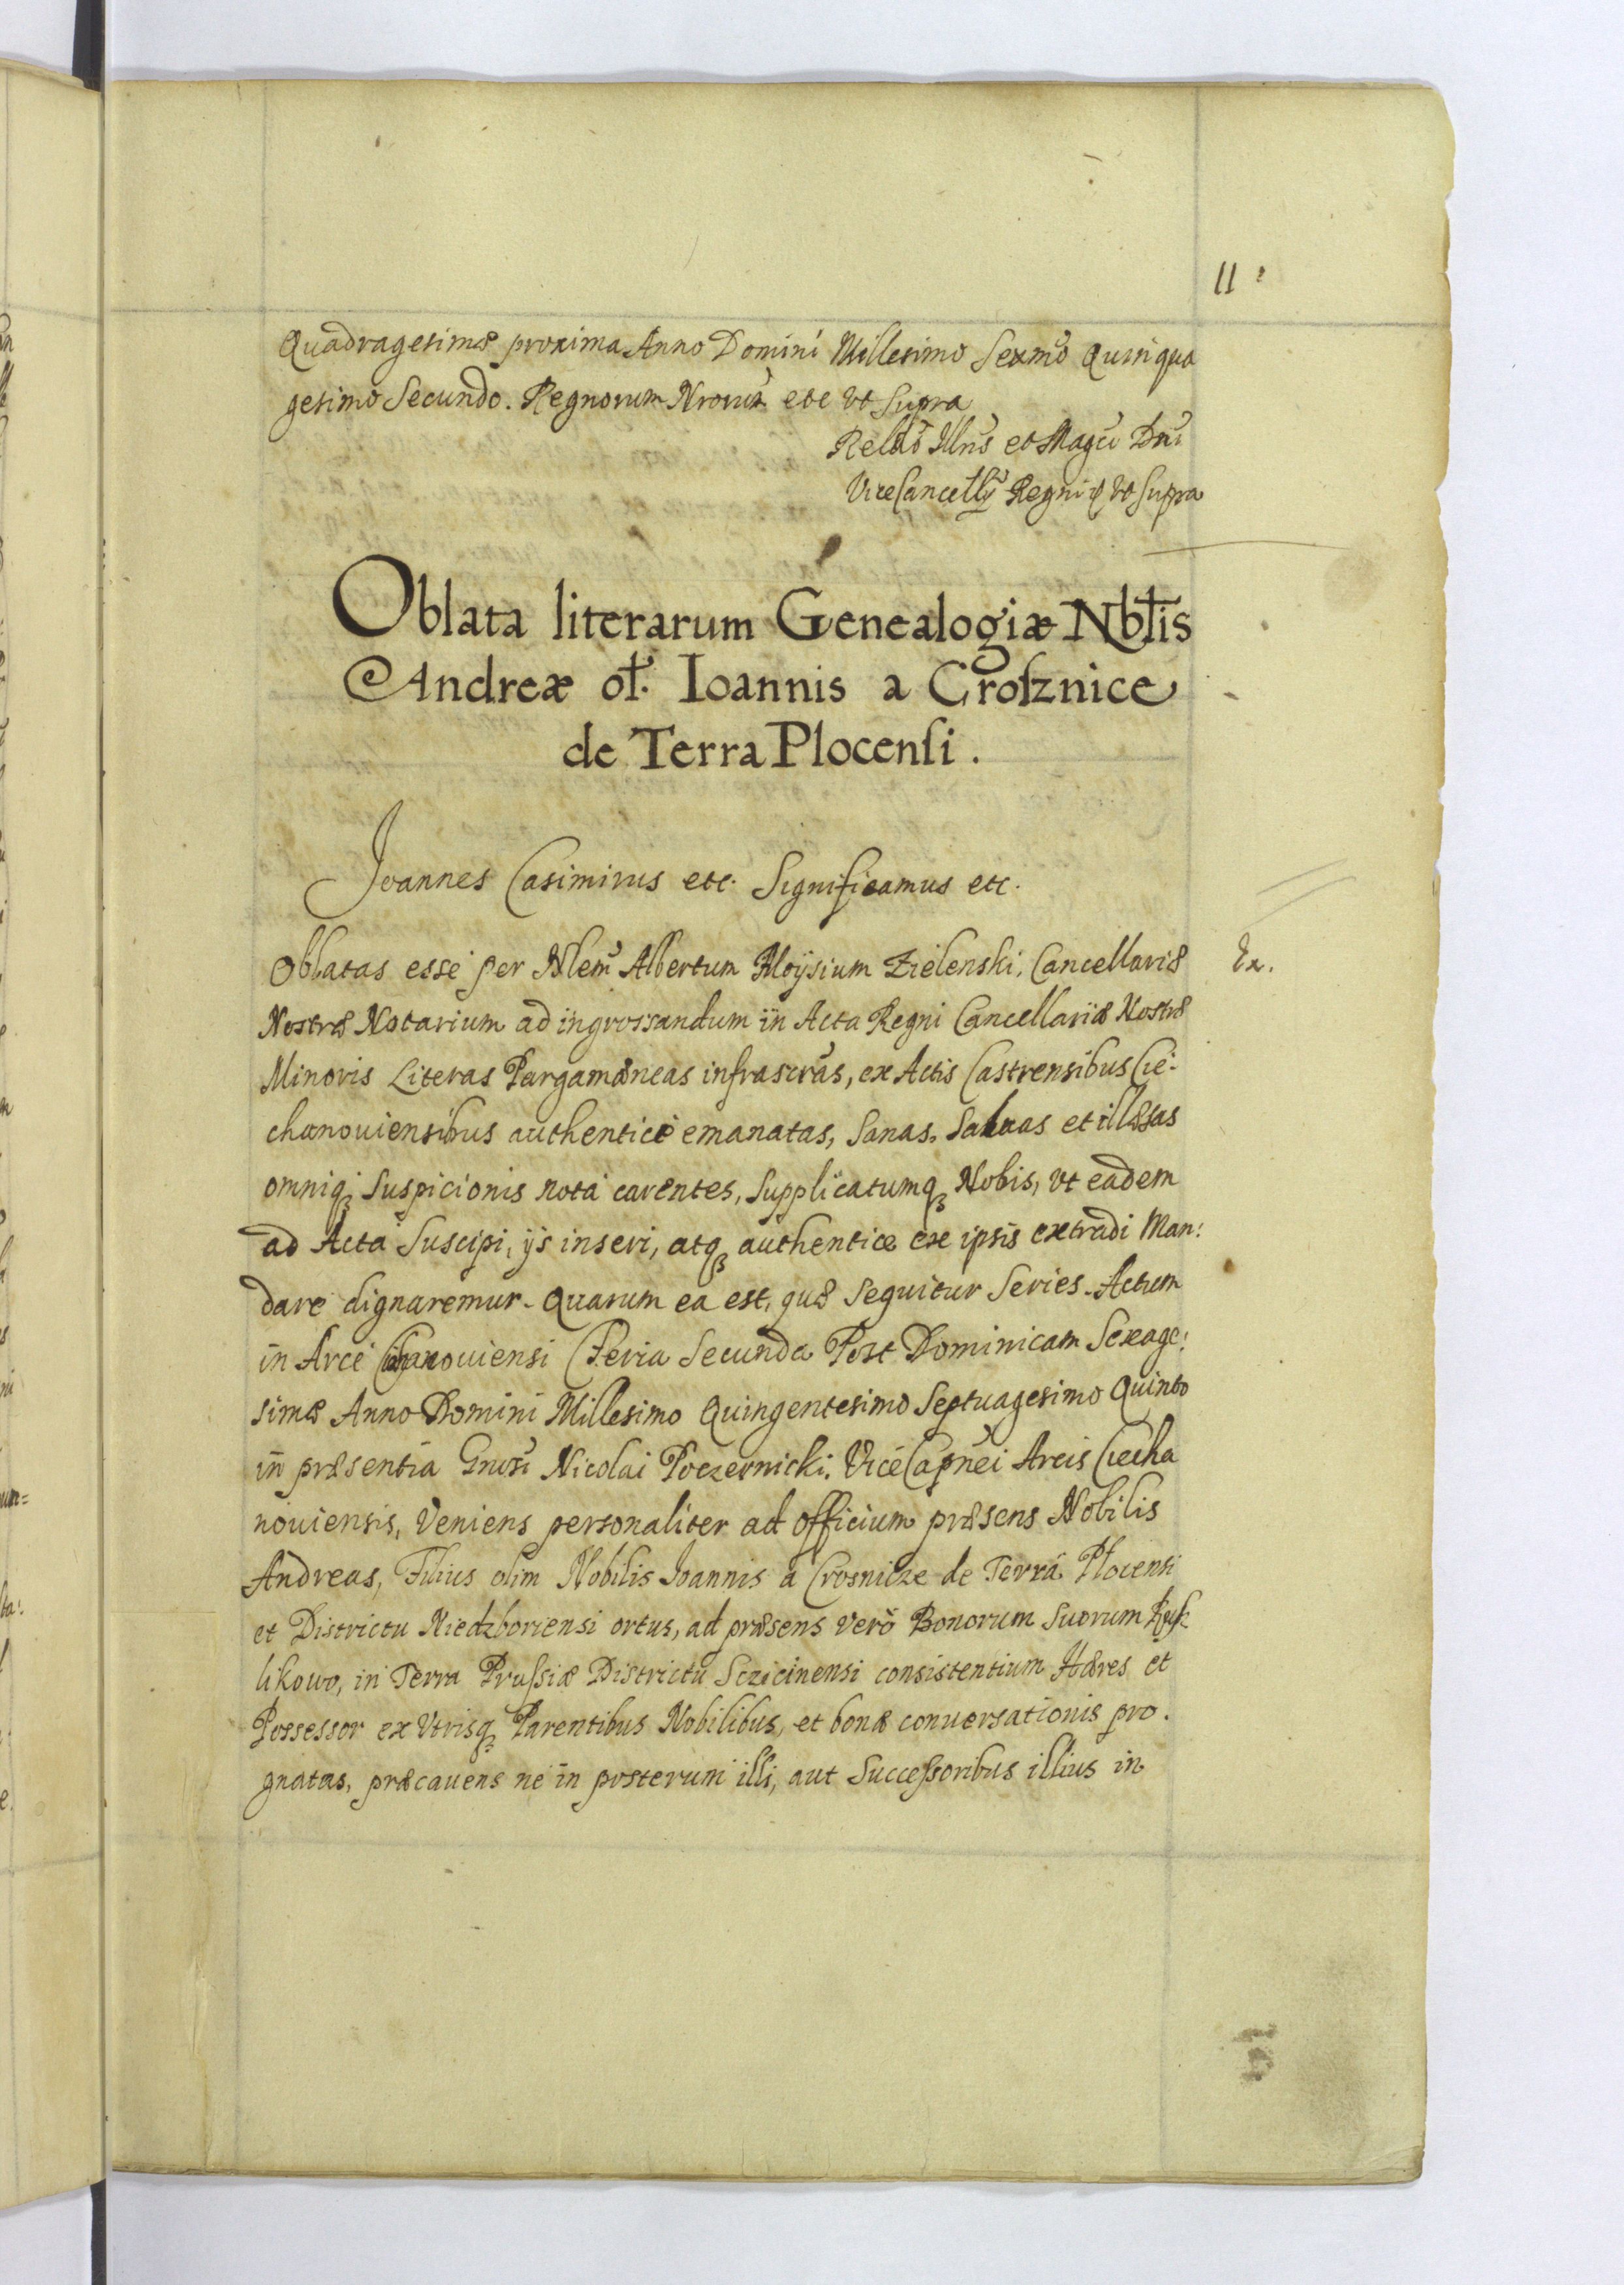 11
Quadragesimæ proxima Anno Domini Millesimo Sexmo Quinqua
gesimo Secundo. Regnorum Nrorum etc vt supra
Relao Illris et Magci Dni
ViceCancellrij Regni etc vt supra
Oblata literarum Genealogiæ Nobtis
Andreæ ol. Ioannis a Croſznice
de Terra Plocenſi.
Joannes Casimirus etc. Significamus etc.
Oblatas esse per Nlem Albertum Aloysium Zielenski, Cancellariæ
Ex.
Nostræ Notarium ad ingrossandum in Acta Regni Cancellariæ Nostræ
Minoris Literas Pargamæneas infrascras, ex Actis Castrensibus Cie-
chanouiensibus authentice emanatas, sanas, saluas et illæsas
omniq; suspicionis nota carentes, supplicatumq; Nobis, vt eadem
ad Acta suscipi, ijs inseri, atq; authentice ex ipsis extradi Man:
dare dignaremur. Quarum ea est, quæ sequitur series. Actum
in Arce Ciechanouiensi Feria Secunda Post Dominicam Sexage:
simæ Anno Domini Millesimo Quingentesimo Septuagesimo Quinto
in præsentia Gnosi Nicolai Poczernicki. ViceCapnei Arcis Ciecha
nouiensis, Veniens personaliter ad officium præsens Nobilis
Andreas, Filius olim Nobilis Ioannis a Crosnicze de Terra Plocensi
et Districtu Niedzboriensi ortus, ad præsens vero Bonorum Suorum
likowo, in Terra Pruſsiæ Districtu Sczicinensi consistentium Hæres et
Possessor ex Vtrisq; Parentibus Nobilibus, et bonæ conuersationis pro.
gnatas, præcauens ne in posterum illi, aut Succeſsoribus illius in